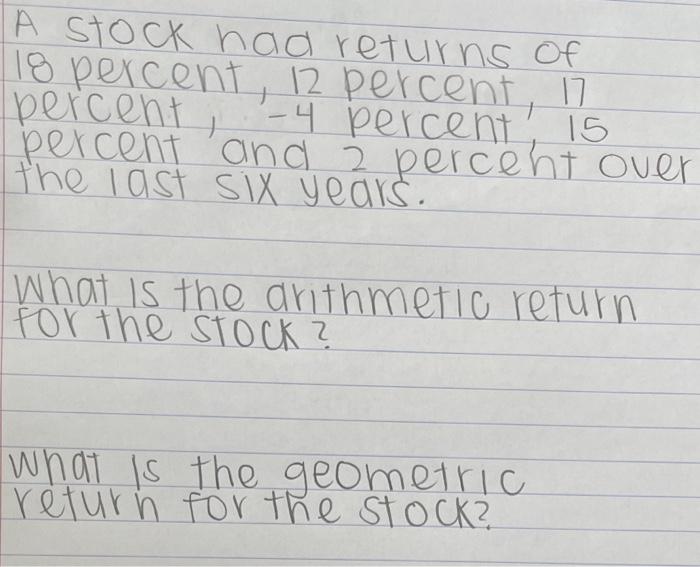 A stock had returns of
18 percent, 12 percent, 17
percent, -4 percent, 15
percent and 2 percent over
the last six years.
What is the arithmetic return
for the stock?
What is the geometric
return for the stock?